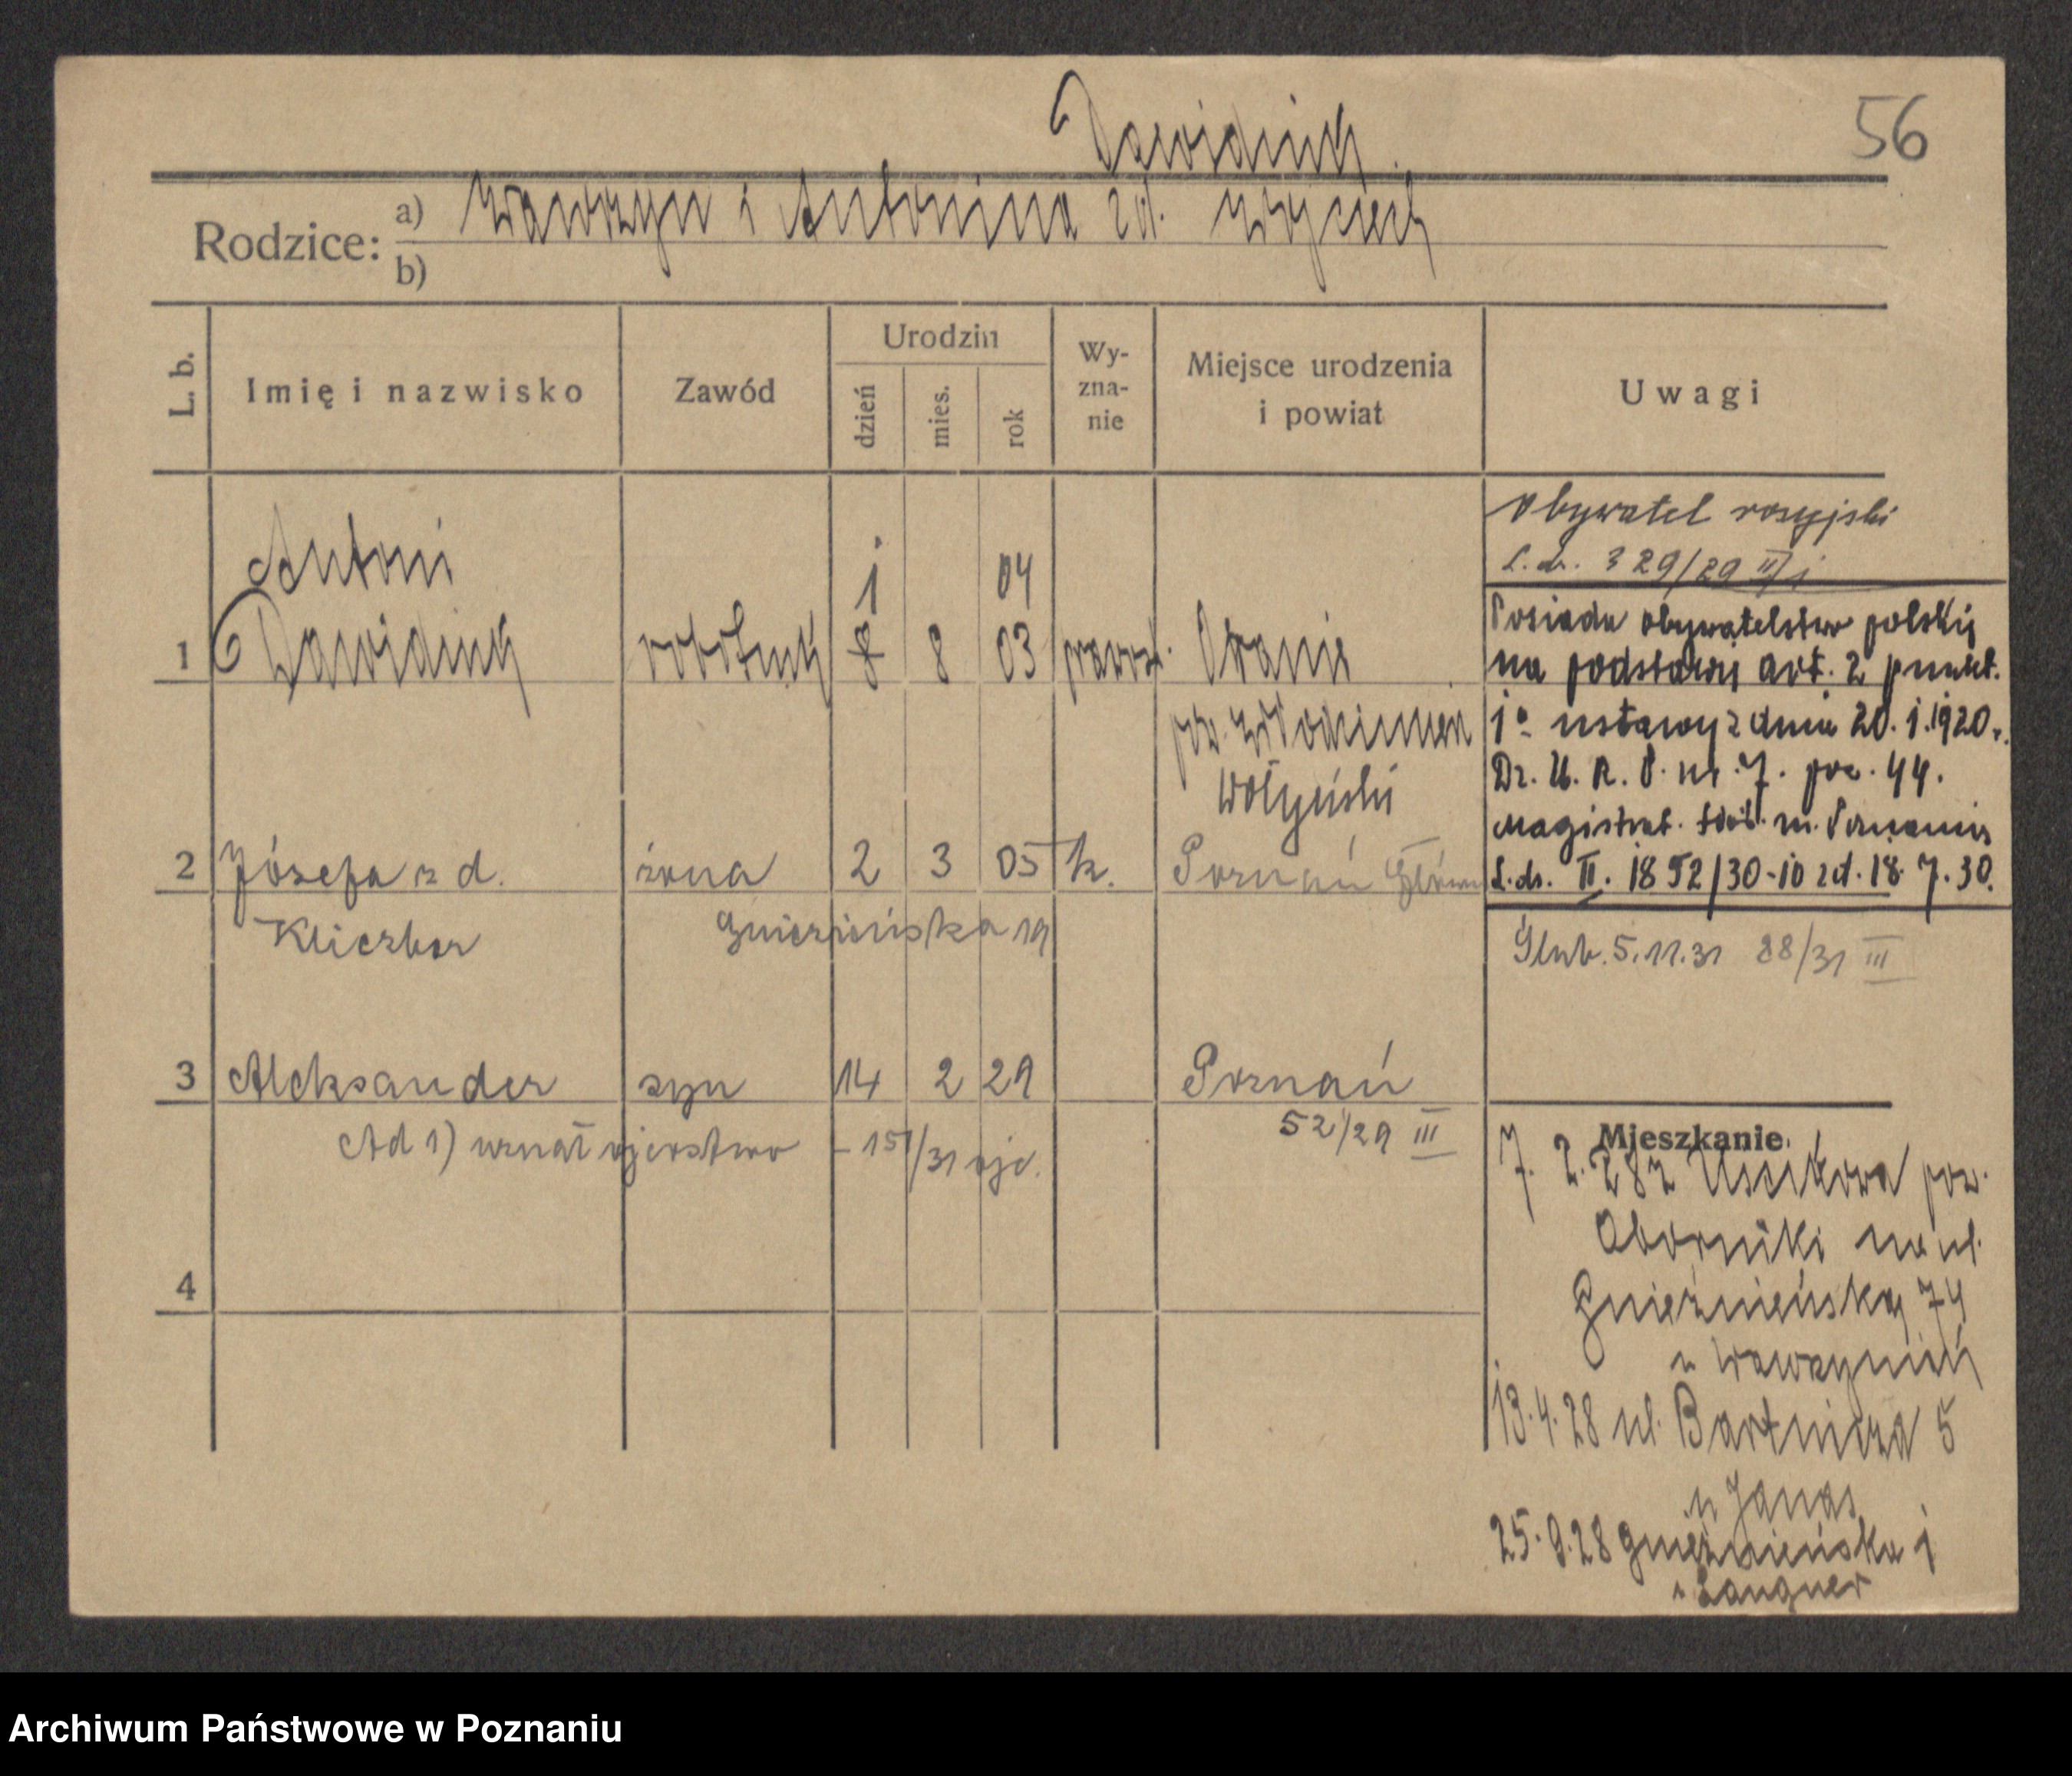 56
Dawidiuk
Rodzice: a) Wawrzyn i Antonina zd. Wojciech
b)
L. b.
Imię i nazwisko
Zawód
Urodzin
dzień
mies.
rok
Wy-
zna-
nie
Miejsce urodzenia
i powiat
Uwagi
Obywatel rosyjski
L. dz. 329/29 II/1
Antoni
1 04
1 Dawidiuk robotnik 8 8 03 prawosł.
pow. Włodzimierz
Wołyński
Posiada obywatelstwo polskie
na podstawie art. 2 punkt.
1º ustawy z dnia 20.1.1920 r.
Dz. U. R. P. nr. 7. poz. 44.
Magistrat. stoł. m. Poznania
L. dz. II. 1852/30-10 zd. 18. 7. 30.
2 Józefa z d. żona 2 3 05 k. Poznań Główna
Kliczbor Gnieźnieńska 19
Ślub. 5.11.31 88/31 III
3 Aleksander syn 14 2 29 Poznań
52/29 III
Ad 1) uznał ojcostwo - 151/31 ojc.
4
Mieszkanie
7. 2. 28 z pow.
Oborniki na ul.
Gnieźnieńską 74
u Wawrzyniak
13.4.28 ul. Bartnicza 5
u Janas
25.9.28 Gnieźnieńska 1
u Langner
Archiwum Państwowe w Poznaniu